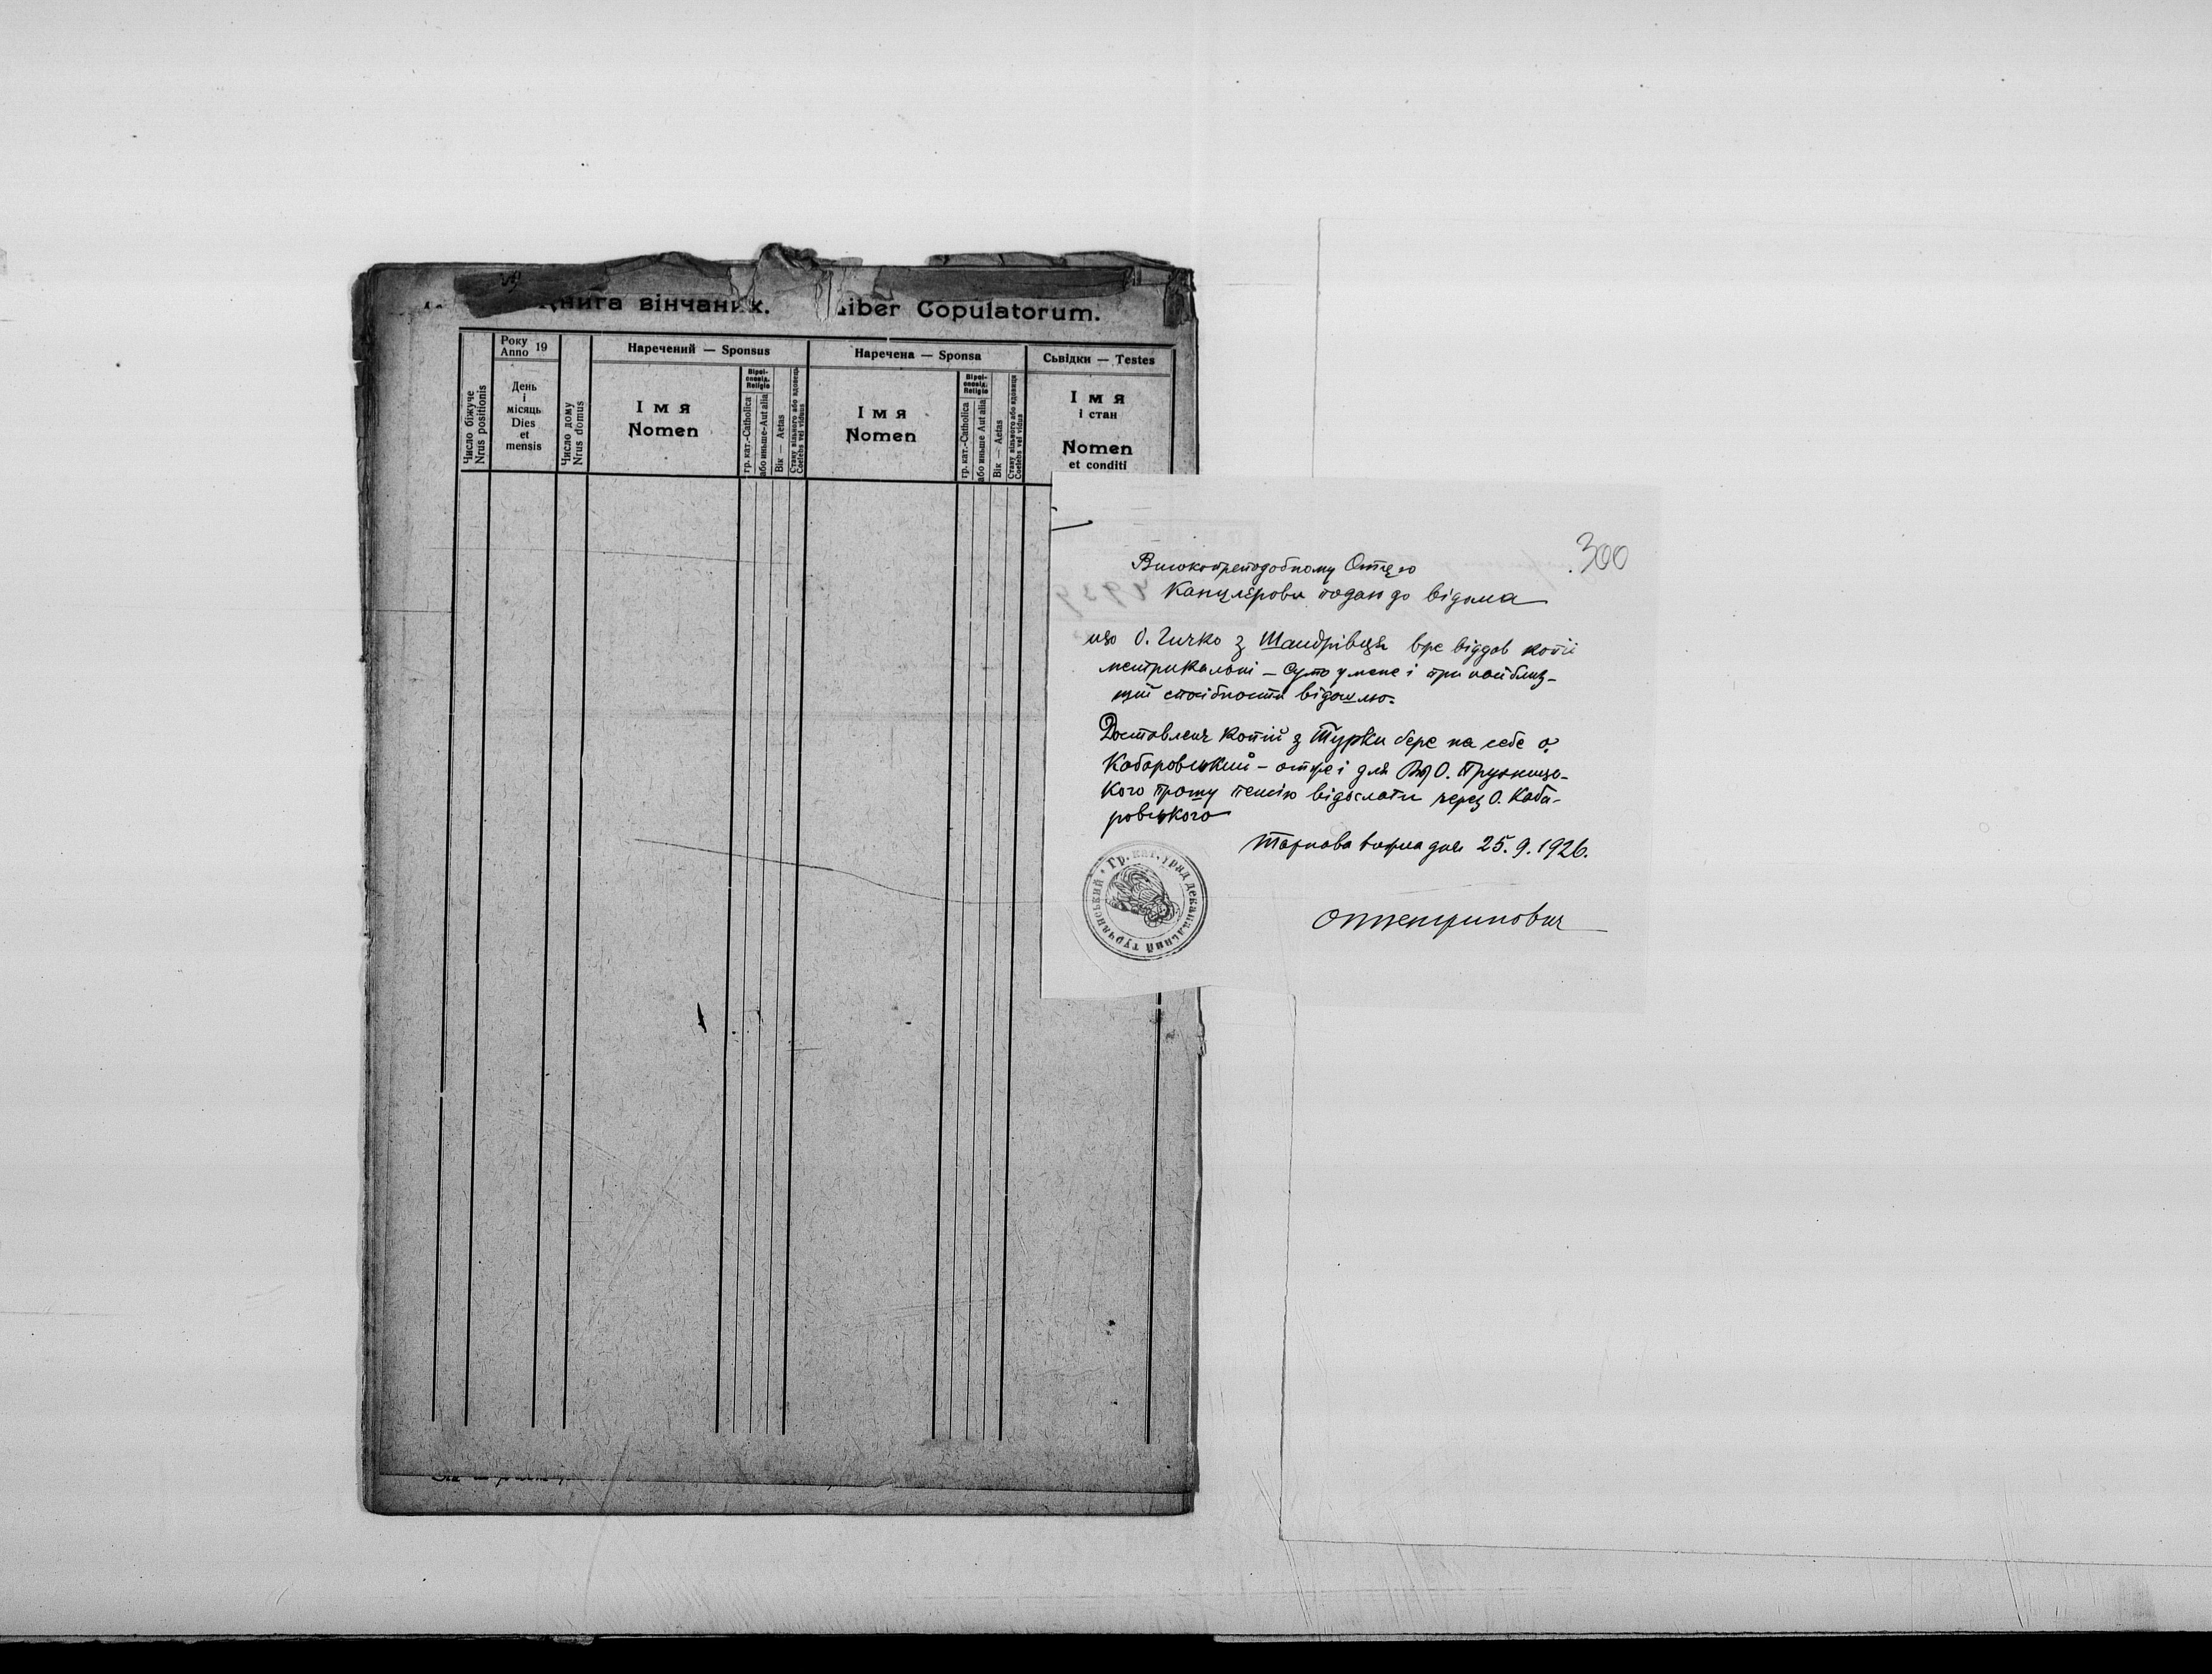 Книга вінчаних. Liber Copulatorum.
Число біжуче
Nrus positionis
Року
Anno 19
День
і
місяць
Dies
et
mensis
Число дому
Nrus domus
Наречений — Sponsus
Імя
Nomen
Віроісповід.
Religio
гр. кат.-Catholica
або иньше-Aut alia
Вік — Aetas
Стану вільного або вдовець
Coelebs vel viduus
Наречена — Sponsa
Імя
Nomen
Віроісповід.
Religio
гр. кат.-Catholica
або иньше Aut alia
Вік — Aetas
Стану вільного або вдовиця
Coelebs vel vidua
Сьвідки — Testes
Імя
і стан
Nomen
et conditi
300
Високопреподобному Отцю
Канцлєрови подаю до відома
що О. Гичко з Шандрівця вже віддав копії
метрикальні – суть у мене і при найблиз-
щій спосібности відошлю.
Доставленє копій з Турки бере на себе о.
Кабаровський – отже і для О.
Кого прошу пенсію відослати через О. Каба-
ровського
дня 25. 9. 1926.
Гр. кат. уряд деканальний турчанський